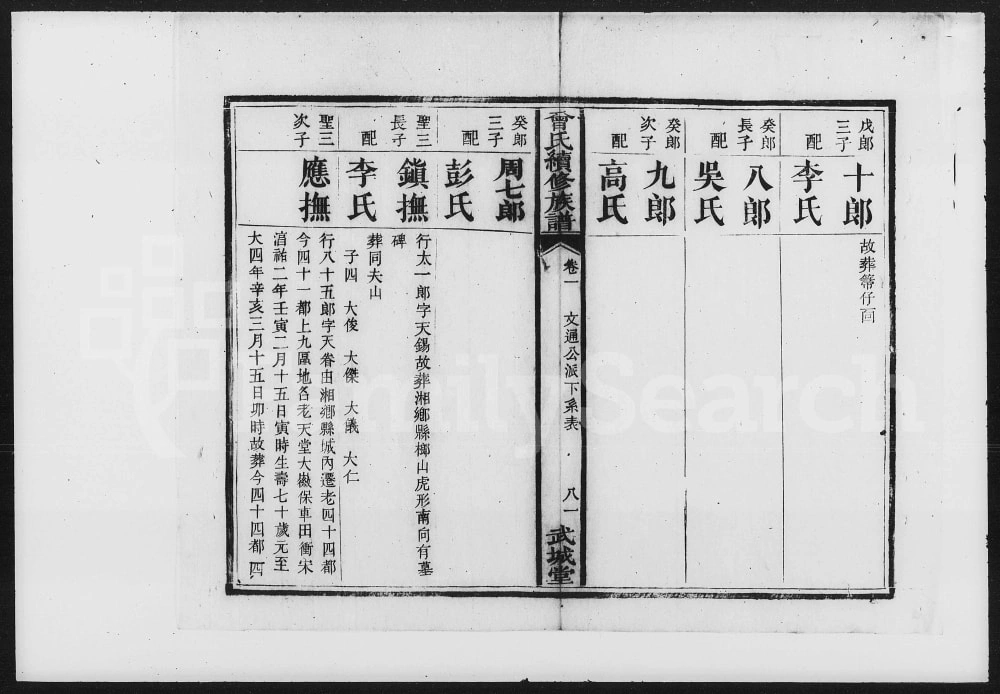 戊郎三子
十郎
故葬箒仔
配
李氏
癸郎長子
八郎
配
吳氏
癸郎次子
九郎
配
高氏
曾氏續修族譜
卷一
文通公派下系表
八一
武城堂
癸郎三子
周七郎
配
彭氏
聖三長子
鎭撫
行太一郎字天錫故葬湘鄉縣榔山虎形南向有墓
碑
配
李氏
葬同夫山
子四 大俊 大傑 大儀 大仁
聖三次子
應撫
行八十五郎字天眷由湘鄉縣城內遷老四十四都
今四十一都上九區地名老天堂大嶽保車田衝宋
淳祐二年壬寅二月十五日寅時生壽七十歲元至
大四年辛亥三月十五日卯時故葬今四十四都四
FamilySearch